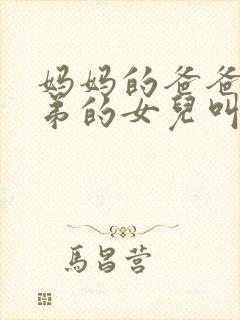 妈妈的爸爸
弟的女兒叫
馬昌营